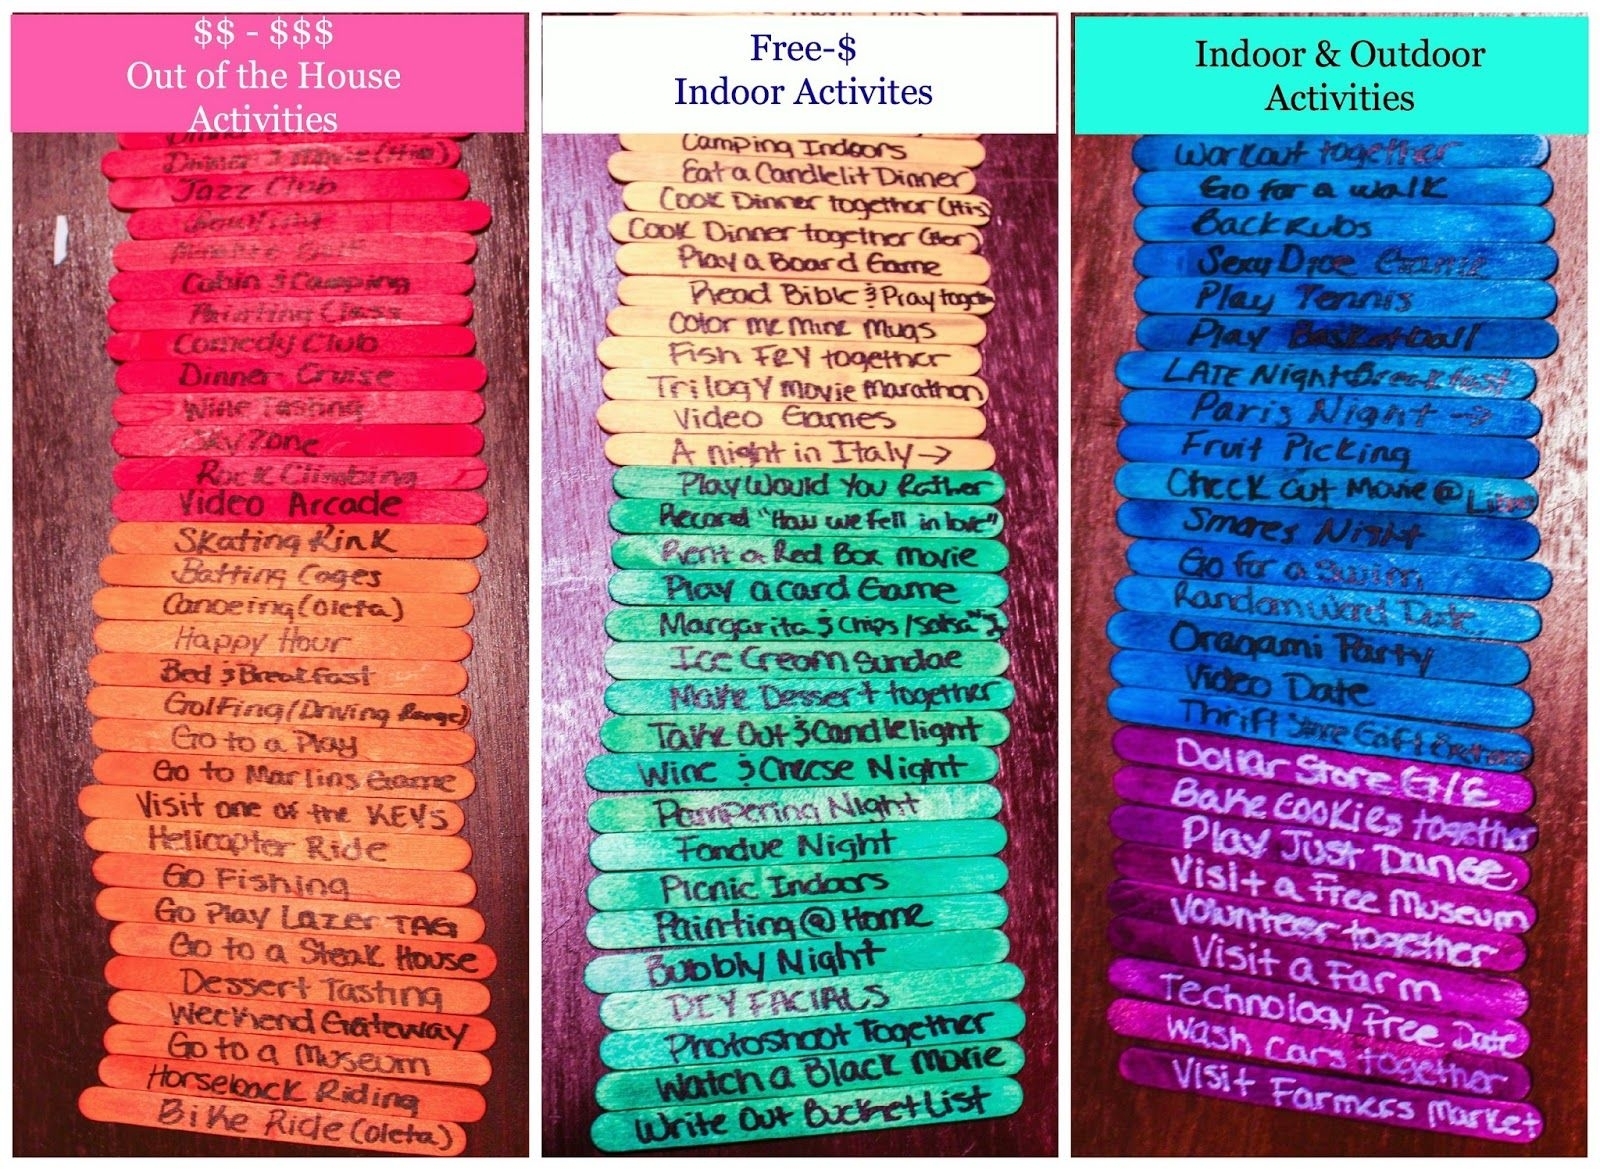 $$ - $$$
Out of the House
Activities
Dinner & Movie (His)
Jazz Club
Bowling
Cabin & Camping
Painting Class
Comedy Club
Dinner Cruise
Wine Tasting
Sky Zone
Rock Climbing
Video Arcade
Skating Rink
Batting Cages
Canoeing (Oleta)
Happy Hour
Bed & Breakfast
Golfing (Driving Range)
Go to a Play
Go to Marlins Game
Visit one of the KEYs
Helicopter Ride
Go Fishing
Go Play Lazer TAG
Go to a Steak House
Dessert Tasting
Weekend Gateway
Go to a Museum
Horseback Riding
Bike Ride (Oleta)
Free-$
Indoor Activites
Camping Indoors
Eat a Candlelit Dinner
Cook Dinner together (His)
Cook Dinner together (Her)
Play a Board Game
Read Bible & Pray together
Color me Mine Mugs
Fish FRY together
Trilogy Movie Marathon
Video Games
A night in Italy →
Play Would You Rather
Record "How we fell in love"
Rent a Red Box Movie
Play a card Game
Margarita & Chips/Salsa
Ice Cream Sundae
Make Dessert together
Take Out & Candlelight
Wine & Cheese Night
Pampering Night
Fondue Night
Picnic Indoors
Painting @ Home
Bubbly Night
DIY FACIALS
Photoshoot Together
Watch a Black Movie
Write Out Bucket List
Indoor & Outdoor
Activities
Workout together
Go for a walk
Back Rubs
Sexy Dice Game
Play Tennis
Play Basketball
LATE Night Breakfast
Paris Night →
Fruit Picking
Check Out Movie @
Smores Night
Go for a Swim
Random Word Date
Oragami Party
Video Date
Thrift Store Gift
Dollar Store G/E
Bake Cookies together
Play Just Dance
Visit a Free Museum
Volunteer together
Visit a Farm
Technology Free Date
Wash cars together
Visit Farmers Market